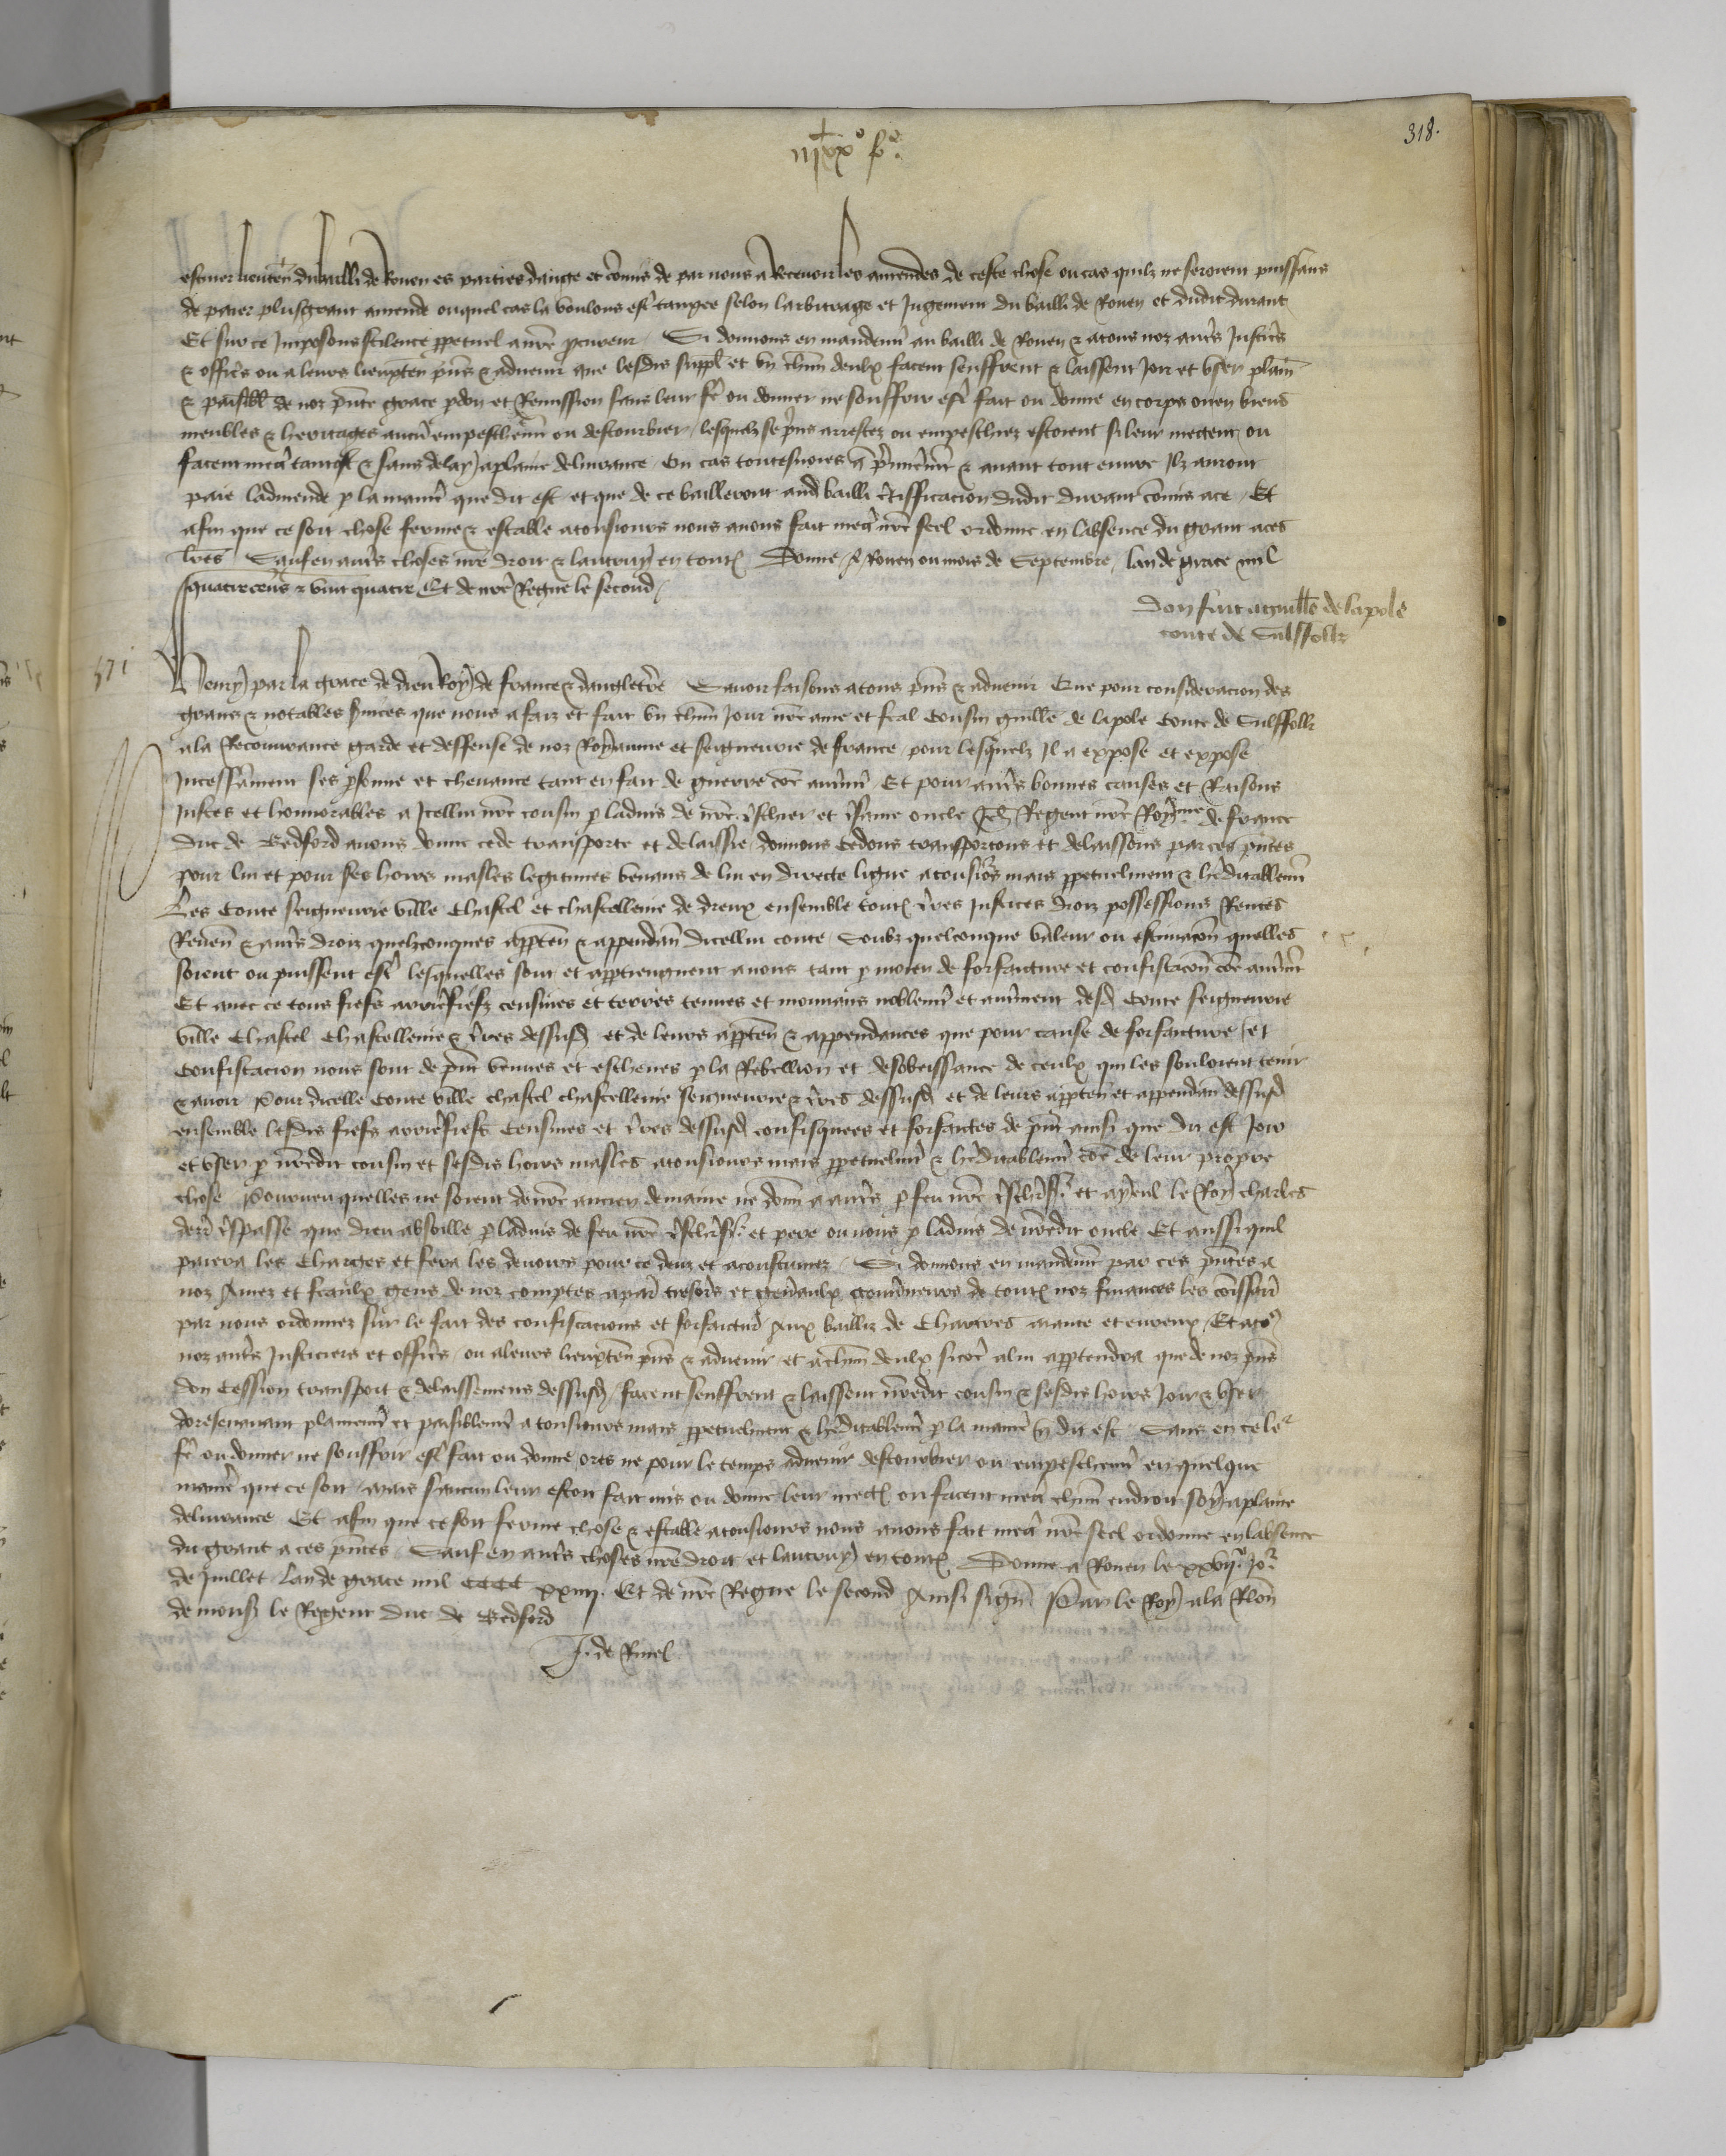 318.
estiner lieuten du bailli de Rouen es parties dauge et comis de par nous a Recevoir les amendes de ceste chose ou cas quilz ne seroient puissans
de paier plus grant amende ouquel cas la voulons estre tauxee selon larbitrage et Jugement du bailli de Rouen et dudit durant
Et sur ce Imposons scilence ppetuel a nre pcureur Si donnons en mandemt au bailli de Rouen & a tous noz autrs Justicrs
& officrs ou a leurs lieuxten pns & advenir que lesdis suppl et un chm deulx facent seuffrent & laissent Joir et user plainemt
& paisibl de noz pnte grace pdon et Remission sans leur fe ou donner ne souffrir estre fait ou donne en corps ou en biens
meubles & heritages aucun empeschemt ou destourbier lesquelz se prins arrestez ou empeschiez estoient si leur mectent ou
facent mectre tantost & sans delay a plaine delivrance Ou cas toutesvoies q premieremt & avant tout euvre Ilz auront
paie ladmende p la manie que dit est et que de ce bailleront aud bailli ctifficacion dudit durant comis a ce Et
afin que ce soit chose ferme & estable a tousiours nous avons fait mectre nre seel ordonne en labsence du grant a ces
lres Sauf en autrs choses nre droit & lautruy en toutes Donne A Rouen ou mois de Septembre lan de grace mil
quatrecens & vint quatre Et de nre Regne le second
Don fait a guille de la pole
conte de Sulffolk
571
Henry par la grace de dieu Roy de france & dangleterre Savoir faisons a tous pns & advenir Que pour consideracion des
grans & notables svices que nous a faiz et fait un chm Jour nre ame et feal cousin guille de la pole Conte de Sulffolk
a la Recouvrance garde et deffense de noz Royaume et seigneurie de france pour lesquelz Il a expose et expose
Incessament ses psonne et chevance tant en fait de guerre coe autremt Et pour autrs bonnes causes et Raisons
Justes et honnorables a Icellui nre cousin p ladvis de nre treschier et tresame oncle Jeh Regent nre Royaume de france
Duc de Bedford avons donne cede transporte et delaissie donnons Cedons transportons et delaissons par ces pntes
pour lui et pour ses hoirs masles legitimes venans de lui en directe ligne a tousiours mais ppetuelment & heditablemt
Les Conte seigneurie ville Chastel et chastellenie de dreux ensemble toutes tres Justices droiz possessions Rentes
Revenu & autrs droiz quelzconques appten & appendan dicellui conte Soubz quelconque valeur ou estimacon quelles
soient ou puissent estre lesquelles sont et apptiengnent a nous tant p moien de forfaicture et confiscacon coe autremt
Et avec ce tous fiefs arrierefiefz censives et terres tenues et mouvans noblemt et autrement desd Conte seigneurie
ville Chastel Chastellenie & tres dessusd et de leurs appten & appendances que pour cause de forfaicture et
Confiscacion nous sont de pnt venues et escheues p la Rebellion et desobeissance de ceulx qui les souloient tenir
& avoir Pour dicelle Conte ville chastel chastellenie seigneurie & tres dessusd et de leurs appten et appendan dessusd
ensemble lesdis fiefs arrierefiefs Censives et tres dessusd confisquees et forfaictes de pnt ainsi que dit est Joir
et user p nredit cousin et sesdis hoirs masles a tousiours mais ppetuelmt & heditablemt coe de leur propre
chose Pourveu quelles ne soient de nre ancien demaine ne donn a autrs p feu nre treschr sr et ayeul le Roy charles
derr trespasse que dieu absoille p ladvis de feu nre treschr sr et pere ou nous p ladvis de nredit oncle Et aussi quil
paiera les Charges et fera les devoirs pour ce deuz et acoustumez Si donnons en mandemt par ces pntes a
noz Amez et feaulx gens de noz comptes a paris tresorrs et genaulx gouvneurs de toutes noz finances les comissairs
par nous ordonnez sur le fait des confiscacions et forfaictur Aux bailliz de Chartres mante et evreux Et a tos
noz autrs Justiciers et officrs ou a leurs lieuxten pns & advenir et a chm deulx sicoe a lui apptendra que de noz pns
don Cession transport & delaissemens dessusd facent seuffrent & laissent nredit cousin & sesdis hoirs Joir & user
doresenavant plainemt et paisiblemt a tousiours mais ppetuelment & heditablemt p la manie q dit est Sans en ce lr
fe ou donner ne souffrir estre fait ou donne ores ne pour le temps advenir destourbier ou empeschemt en quelque
manie que ce soit Mais saucun leur estoit fait mis ou donne leur mectes ou facent mectre chm endroit soy a plaine
delivrance Et afin que ce soit ferme chose & estable a tousiours nous avons fait mectre nre seel ordonne en labsence
du grant a ces pntes Sauf en autrs choses nre droit et lautruy en toutes Donne a Rouen le xxviie Jor
de Juillet Lan de grace mil CCCC xxiiij. Et de nre Regne le second Ainsi signe Par le Roy a la Rlon
de monsr le Regent Duc de Bedford
J. de Rinel